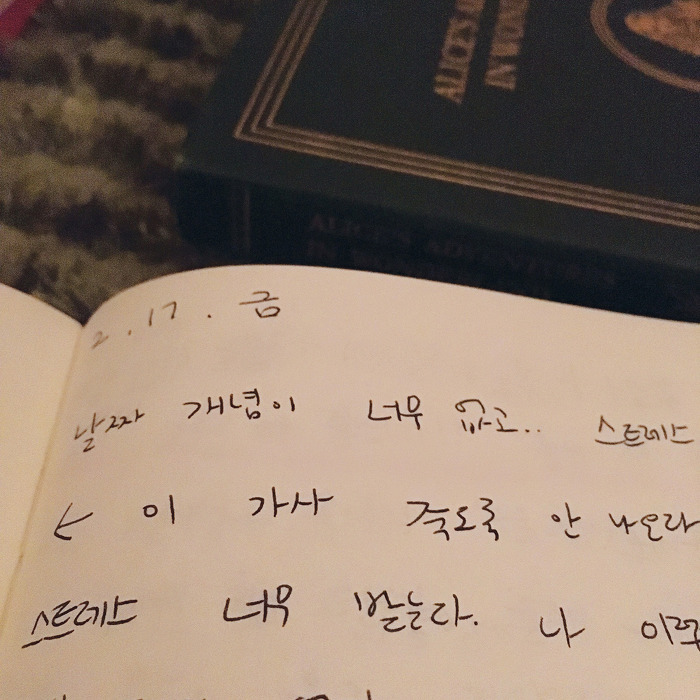 ALICE'S A
IN WON
ALICE'S ADVENTURES
IN
2.17.금
날짜 개념이 너무 없고.. 스트레스
← 이 가사 죽도록 안 나오라
스트레스 너무 받는다. 나